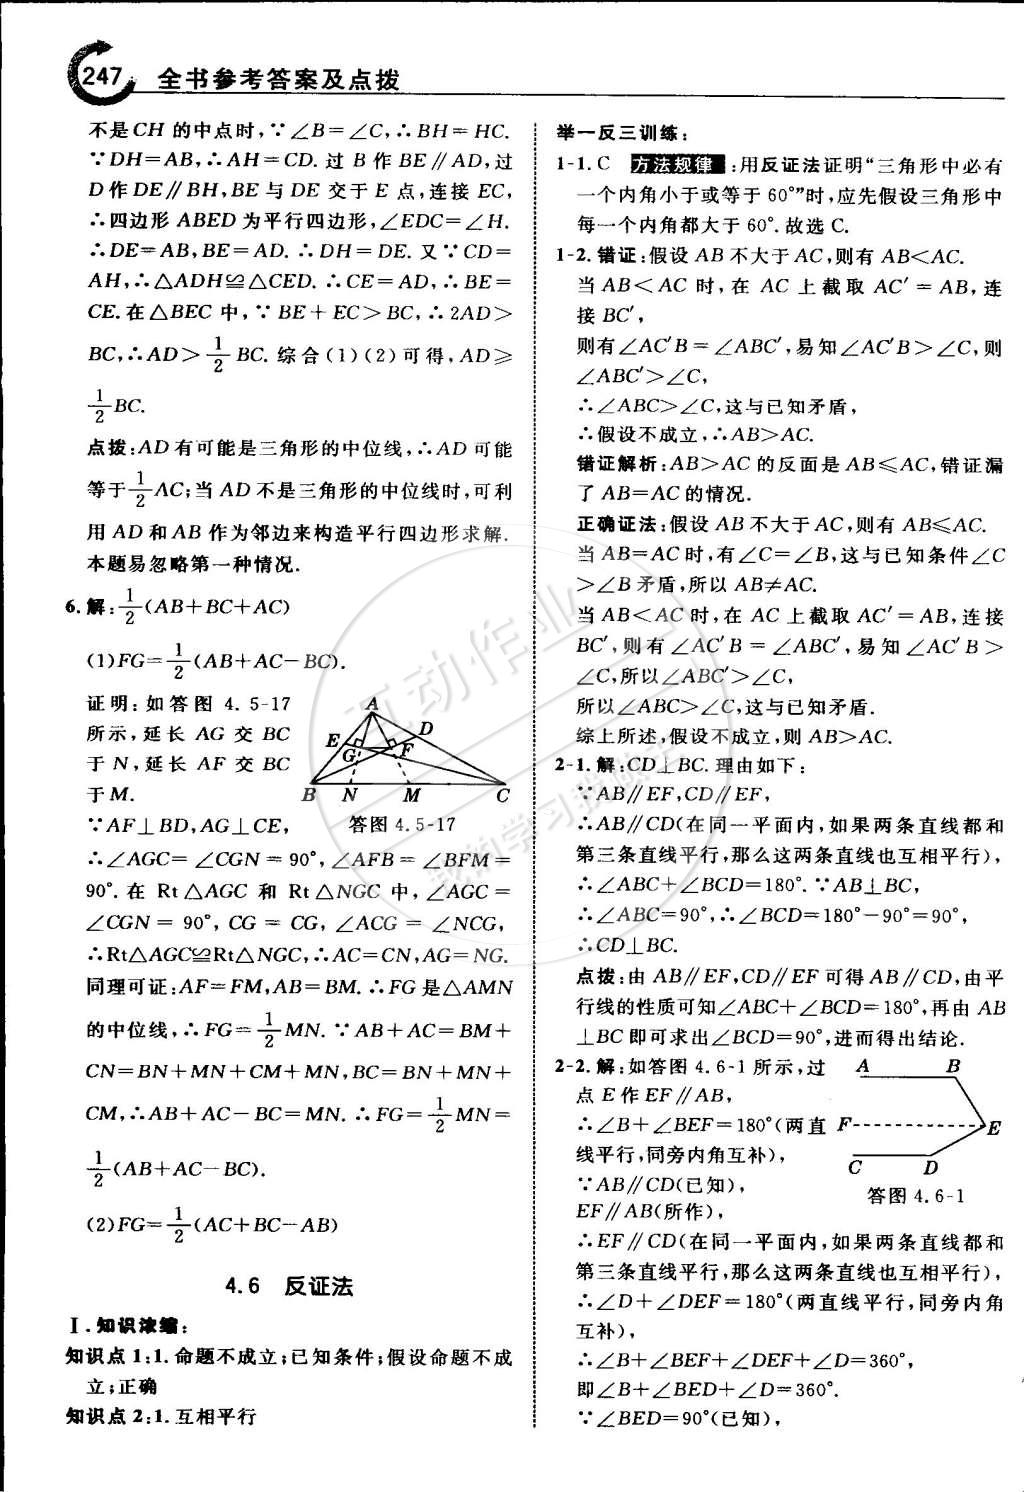 247 全书参考答案及点拨
不是CH 的中点时,∵∠B=∠C,∴BH=HC.
∵DH=AB,∴AH=CD. 过 B 作 BE∥AD,过
D 作 DE∥BH,BE 与 DE 交于 E 点,连接 EC,
∴四边形 ABED 为平行四边形,∠EDC=∠H.
∴DE=AB,BE=AD. ∴DH=DE. 又∵CD=
AH,∴△ADH≌△CED. ∴CE=AD,∴BE=
CE. 在△BEC 中,∵BE+EC>BC,∴2AD>
BC,∴AD>1/2 BC. 综合(1)(2)可得,AD⩾
1/2 BC.
点拨:AD 有可能是三角形的中位线,∴AD 可能
等于1/2 AC;当 AD 不是三角形的中位线时,可利
用 AD 和 AB 作为邻边来构造平行四边形求解.
本题易忽略第一种情况.
6. 解:1/2(AB+BC+AC)
(1)FG=1/2(AB+AC-BC).
证明:如答图 4.5-17
所示,延长 AG 交 BC
于 N,延长 AF 交 BC
于 M.
A
D
E
G
F
B N M C
答图 4.5-17
∵AF⊥BD,AG⊥CE,
∴∠AGC=∠CGN=90°,∠AFB=∠BFM=
90°. 在 Rt△AGC 和 Rt△NGC 中,∠AGC=
∠CGN=90°,CG=CG,∠ACG=∠NCG,
∴Rt△AGC≌Rt△NGC,∴AC=CN,AG=NG.
同理可证:AF=FM,AB=BM. ∴FG 是△AMN
的中位线,∴FG=1/2 MN. ∵AB+AC=BM+
CN=BN+MN+CM+MN,BC=BN+MN+
CM,∴AB+AC-BC=MN. ∴FG=1/2 MN=
1/2(AB+AC-BC).
(2)FG=1/2(AC+BC-AB)
4.6 反证法
Ⅰ.知识浓缩:
知识点 1:1. 命题不成立;已知条件;假设命题不成
立;正确
知识点 2:1. 互相平行
举一反三训练:
1-1. C 方法规律:用反证法证明“三角形中必有
一个内角小于或等于 60°”时,应先假设三角形中
每一个内角都大于 60°. 故选 C.
1-2. 错证:假设 AB 不大于 AC,则有 AB<AC.
当 AB<AC 时,在 AC 上截取 AC′=AB,连
接 BC′,
则有∠AC′B=∠ABC′,易知∠AC′B>∠C,则
∠ABC′>∠C,
∴∠ABC>∠C,这与已知矛盾,
∴假设不成立,∴AB>AC.
错证解析:AB>AC 的反面是 AB⩽AC,错证漏
了 AB=AC 的情况.
正确证法:假设 AB 不大于 AC,则有 AB⩽AC.
当 AB=AC 时,有∠C=∠B,这与已知条件∠C
>∠B 矛盾,所以 AB≠AC.
当 AB<AC 时,在 AC 上截取 AC′=AB,连接
BC′,则有∠AC′B=∠ABC′,易知∠AC′B>
∠C,所以∠ABC′>∠C,
所以∠ABC>∠C,这与已知矛盾.
综上所述,假设不成立,则 AB>AC.
2-1. 解:CD⊥BC. 理由如下:
∵AB∥EF,CD∥EF,
∴AB∥CD(在同一平面内,如果两条直线都和
第三条直线平行,那么这两条直线也互相平行),
∴∠ABC+∠BCD=180°. ∵AB⊥BC,
∴∠ABC=90°,∴∠BCD=180°-90°=90°,
∴CD⊥BC.
点拨:由 AB∥EF,CD∥EF 可得 AB∥CD,由平
行线的性质可知∠ABC+∠BCD=180°,再由 AB
⊥BC 即可求出∠BCD=90°,进而得出结论.
2-2. 解:如答图 4.6-1 所示,过
点 E 作 EF∥AB,
∴∠B+∠BEF=180°(两直
线平行,同旁内角互补),
∵AB∥CD(已知),
EF∥AB(所作),
A B
F E
C D
答图 4.6-1
∴EF∥CD(在同一平面内,如果两条直线都和
第三条直线平行,那么这两条直线也互相平行),
∴∠D+∠DEF=180°(两直线平行,同旁内角
互补),
∴∠B+∠BEF+∠DEF+∠D=360°,
即∠B+∠BED+∠D=360°.
∵∠BED=90°(已知),
互动作业